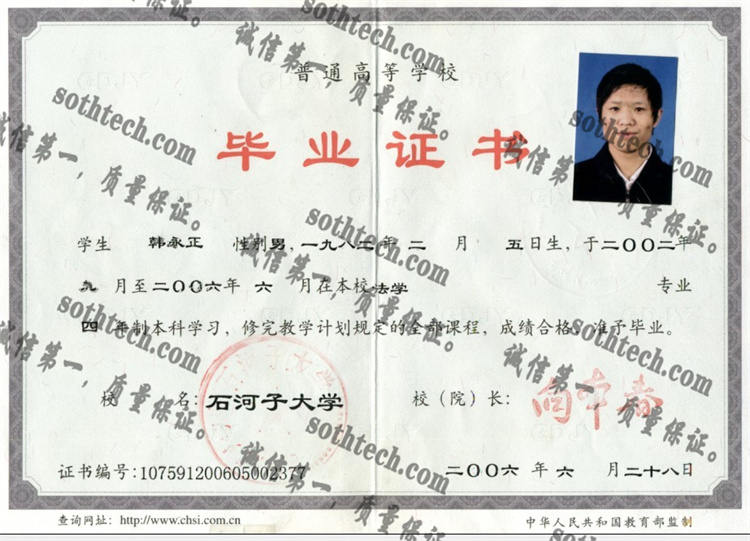 普通高等学校
毕业证书
学生 韩永正 性别男，一九八二年 二 月 五日生，于二〇〇二年
九 月至二〇〇六年 六 月在本校法学 专业
四 年制本科学习，修完教学计划规定的全部课程，成绩合格，准予毕业。
校 名：石河子大学 校（院）长：向本春
证书编号：107591200605002377 二〇〇六 年 六 月二十八日
查询网址：http://www.chsi.com.cn 中华人民共和国教育部监制
sothtech.com
诚信第一，质量保证。
sothtech.com
诚信第一，质量保证。
sothtech.com
诚信第一，质量保证。
sothtech.com
诚信第一，质量保证。
sothtech.com
诚信第一，质量保证。
sothtech.com
诚信第一，质量保证。
sothtech.com
诚信第一，质量保证。
sothtech.com
诚信第一，质量保证。